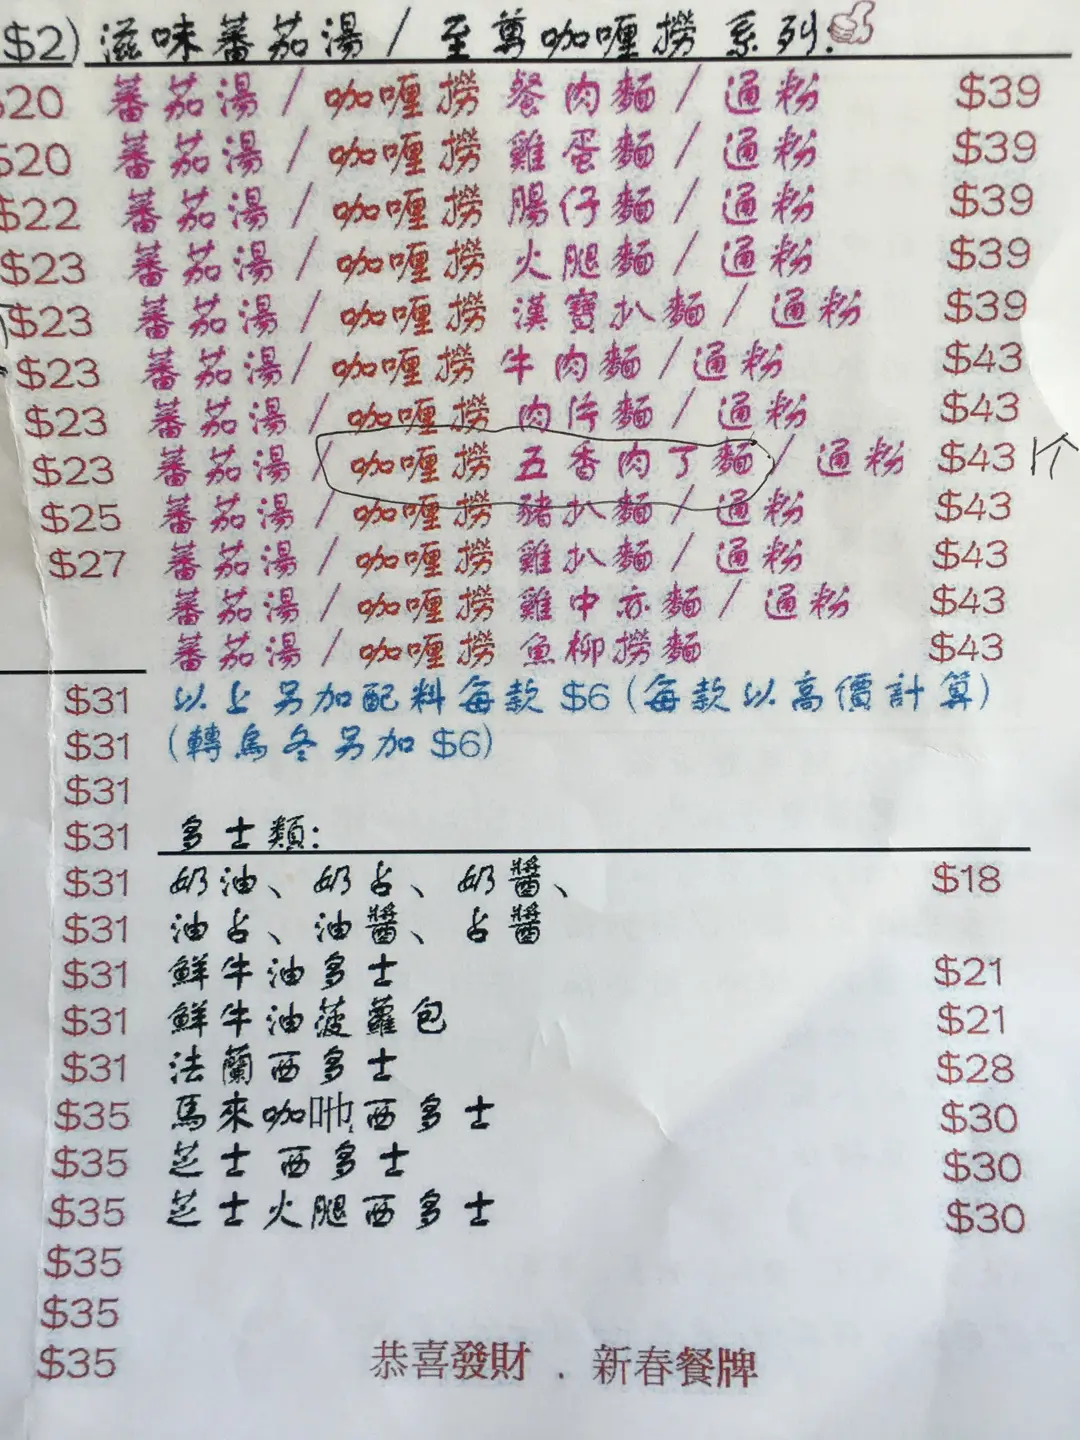 $2) 滋味蕃茄湯 / 至尊咖喱撈 系列.
$20 蕃茄湯 / 咖喱撈 餐肉麵 / 通粉 $39
$20 蕃茄湯 / 咖喱撈 雞蛋麵 / 通粉 $39
$22 蕃茄湯 / 咖喱撈 腸仔麵 / 通粉 $39
$23 蕃茄湯 / 咖喱撈 火腿麵 / 通粉 $39
$23 蕃茄湯 / 咖喱撈 漢寶扒麵 / 通粉 $39
$23 蕃茄湯 / 咖喱撈 牛肉麵 / 通粉 $43
$23 蕃茄湯 / 咖喱撈 肉片麵 / 通粉 $43
$23 蕃茄湯 / 咖喱撈 五香肉丁麵 / 通粉 $43 1个
$25 蕃茄湯 / 咖喱撈 豬扒麵 / 通粉 $43
$27 蕃茄湯 / 咖喱撈 雞扒麵 / 通粉 $43
蕃茄湯 / 咖喱撈 雞中亦麵 / 通粉 $43
蕃茄湯 / 咖喱撈 魚柳撈麵 $43
$31 以上另加配料每款 $6 (每款以高價計算)
$31 (轉烏冬另加 $6)
$31
$31 多士類:
$31 奶油、奶占、奶醬、 $18
$31 油占、油醬、占醬
$31 鮮牛油多士 $21
$31 鮮牛油菠蘿包 $21
$31 法蘭西多士 $28
$35 馬來咖吔西多士 $30
$35 芝士西多士 $30
$35 芝士火腿西多士 $30
$35
$35
$35 恭喜發財 . 新春餐牌